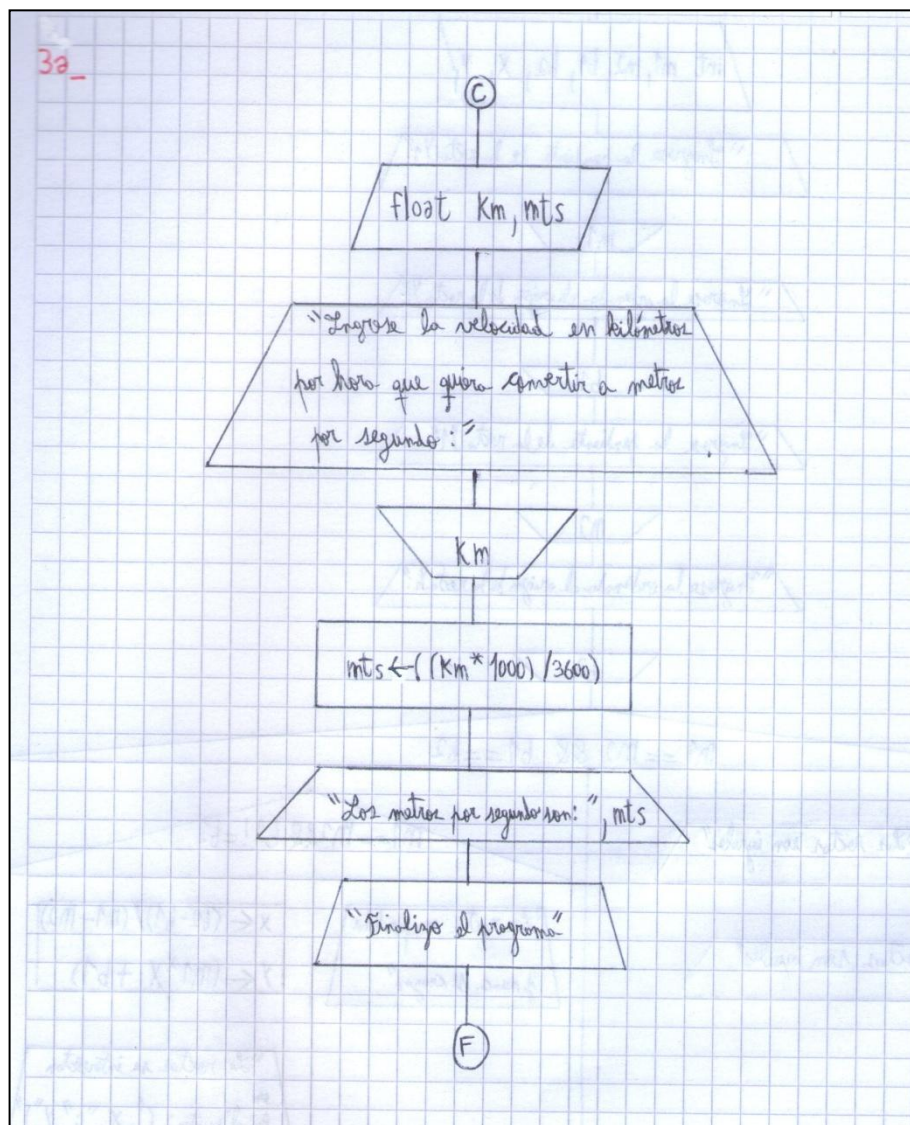 3a_
C
float Km, mts
"Ingrese la velocidad en kilómetros
por hora que quiera convertir a metros
por segundo:"
Km
mts ← ((Km * 1000) /3600)
"Los metros por segundo son: ", mts
"Finalizo el programa"
F